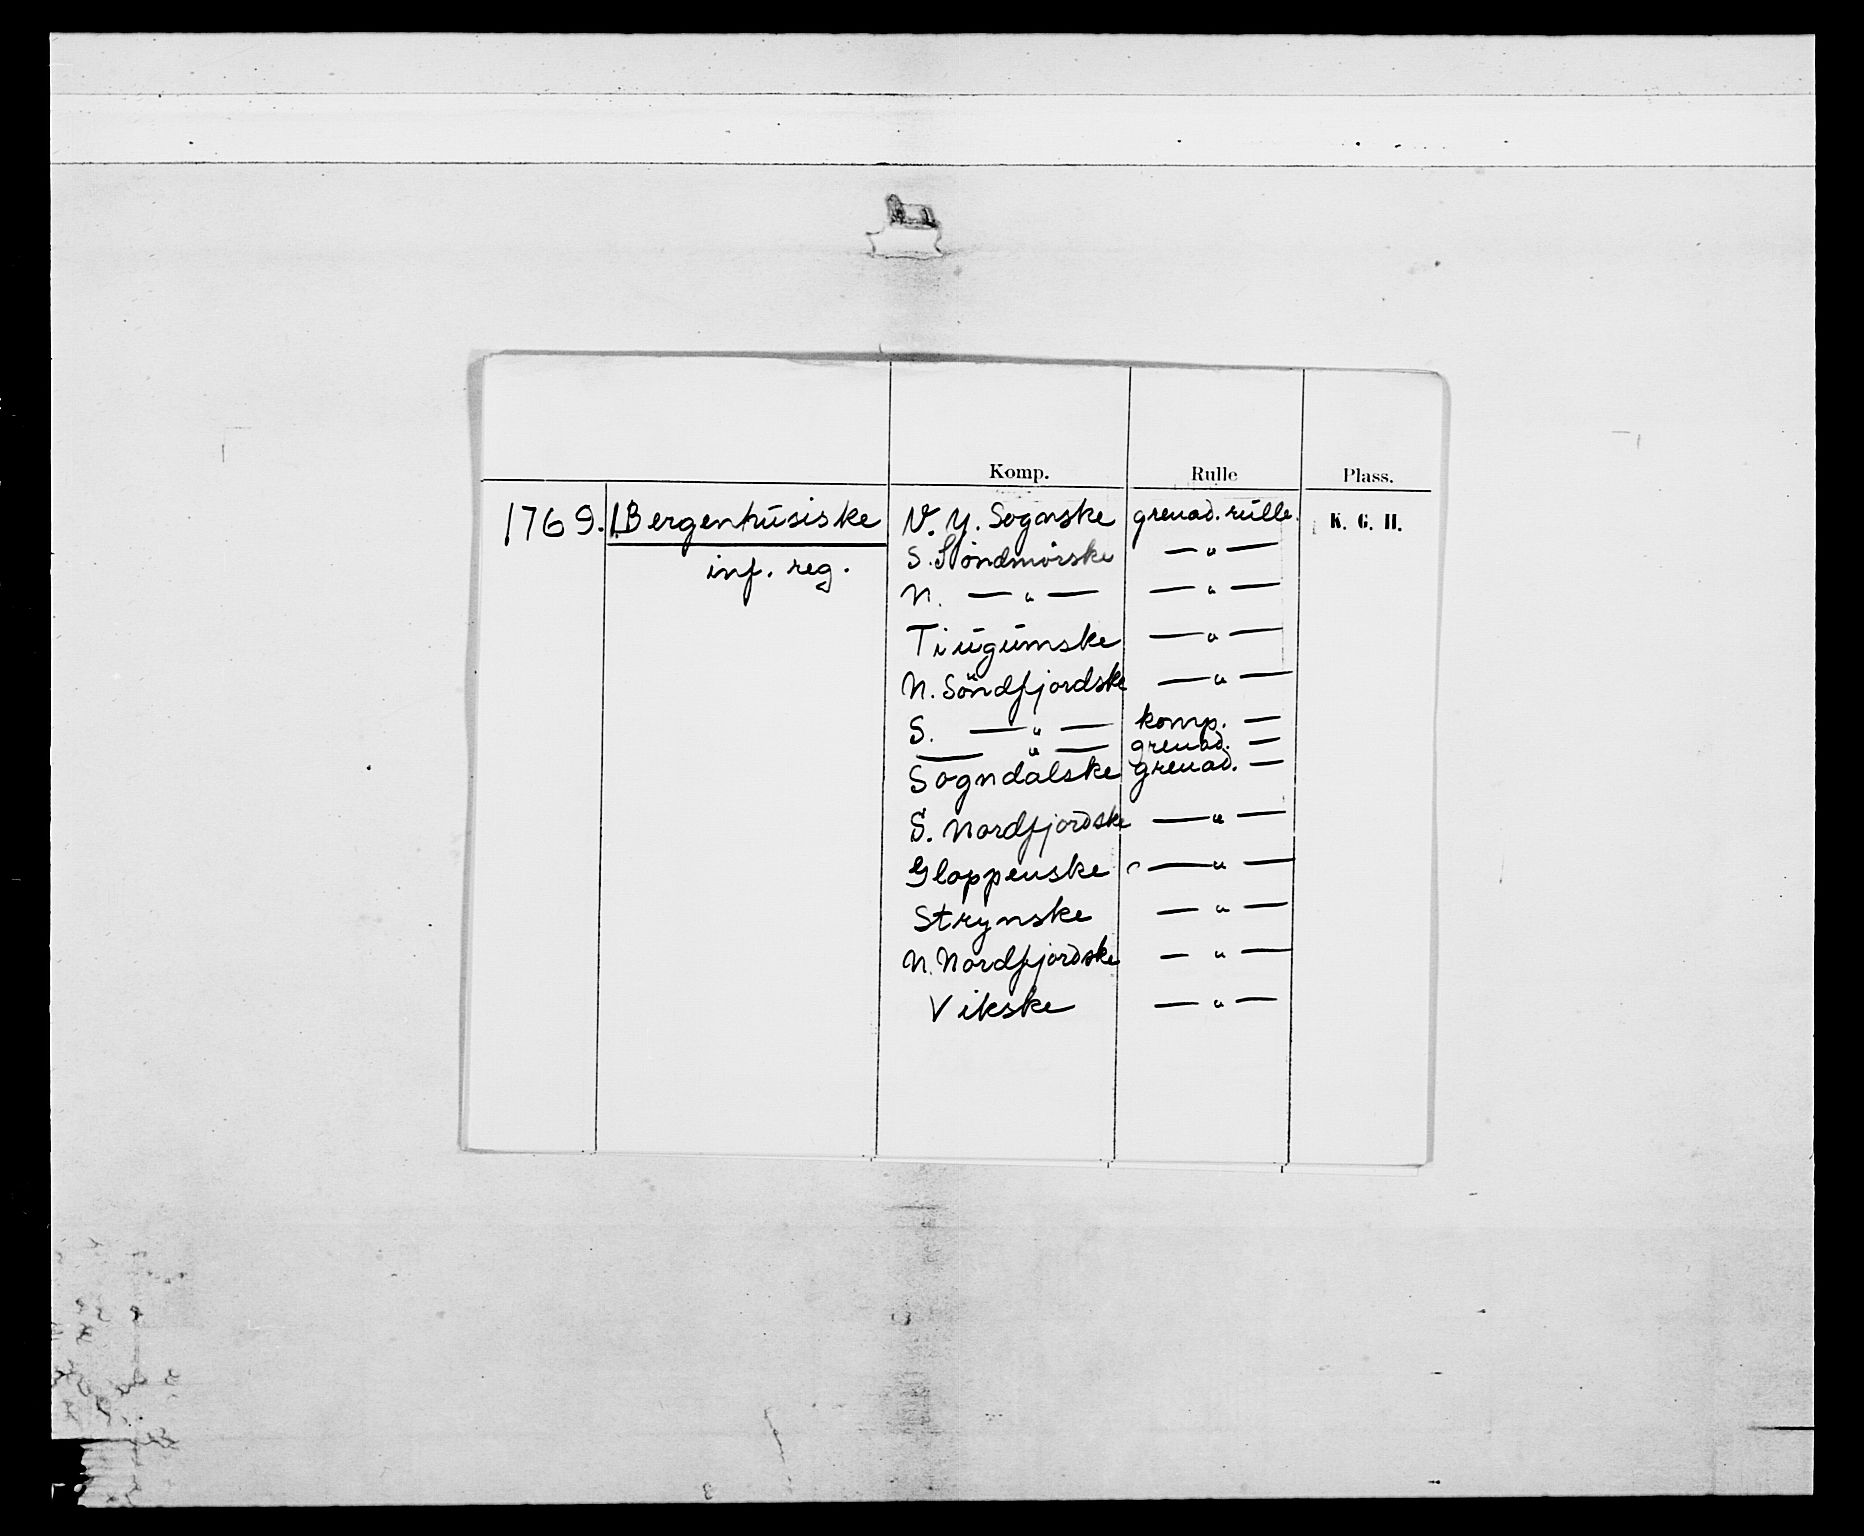 Komp. Rulle Plass.
1769. 1. Bergenhusiske N. Y. Sognske grenad. rulle. K. G. H.
inf. reg. S. Söndmörske — " —
N. — " — — " —
Tiugumske — " —
N. Söndfjordske — " —
S. — " — komp. —
— " — grenad. —
Sogndalske grenad. —
S. Nordfjordske — " —
Gloppenske — " —
Strynske — " —
N. Nordfjordske — " —
Vikske — " —